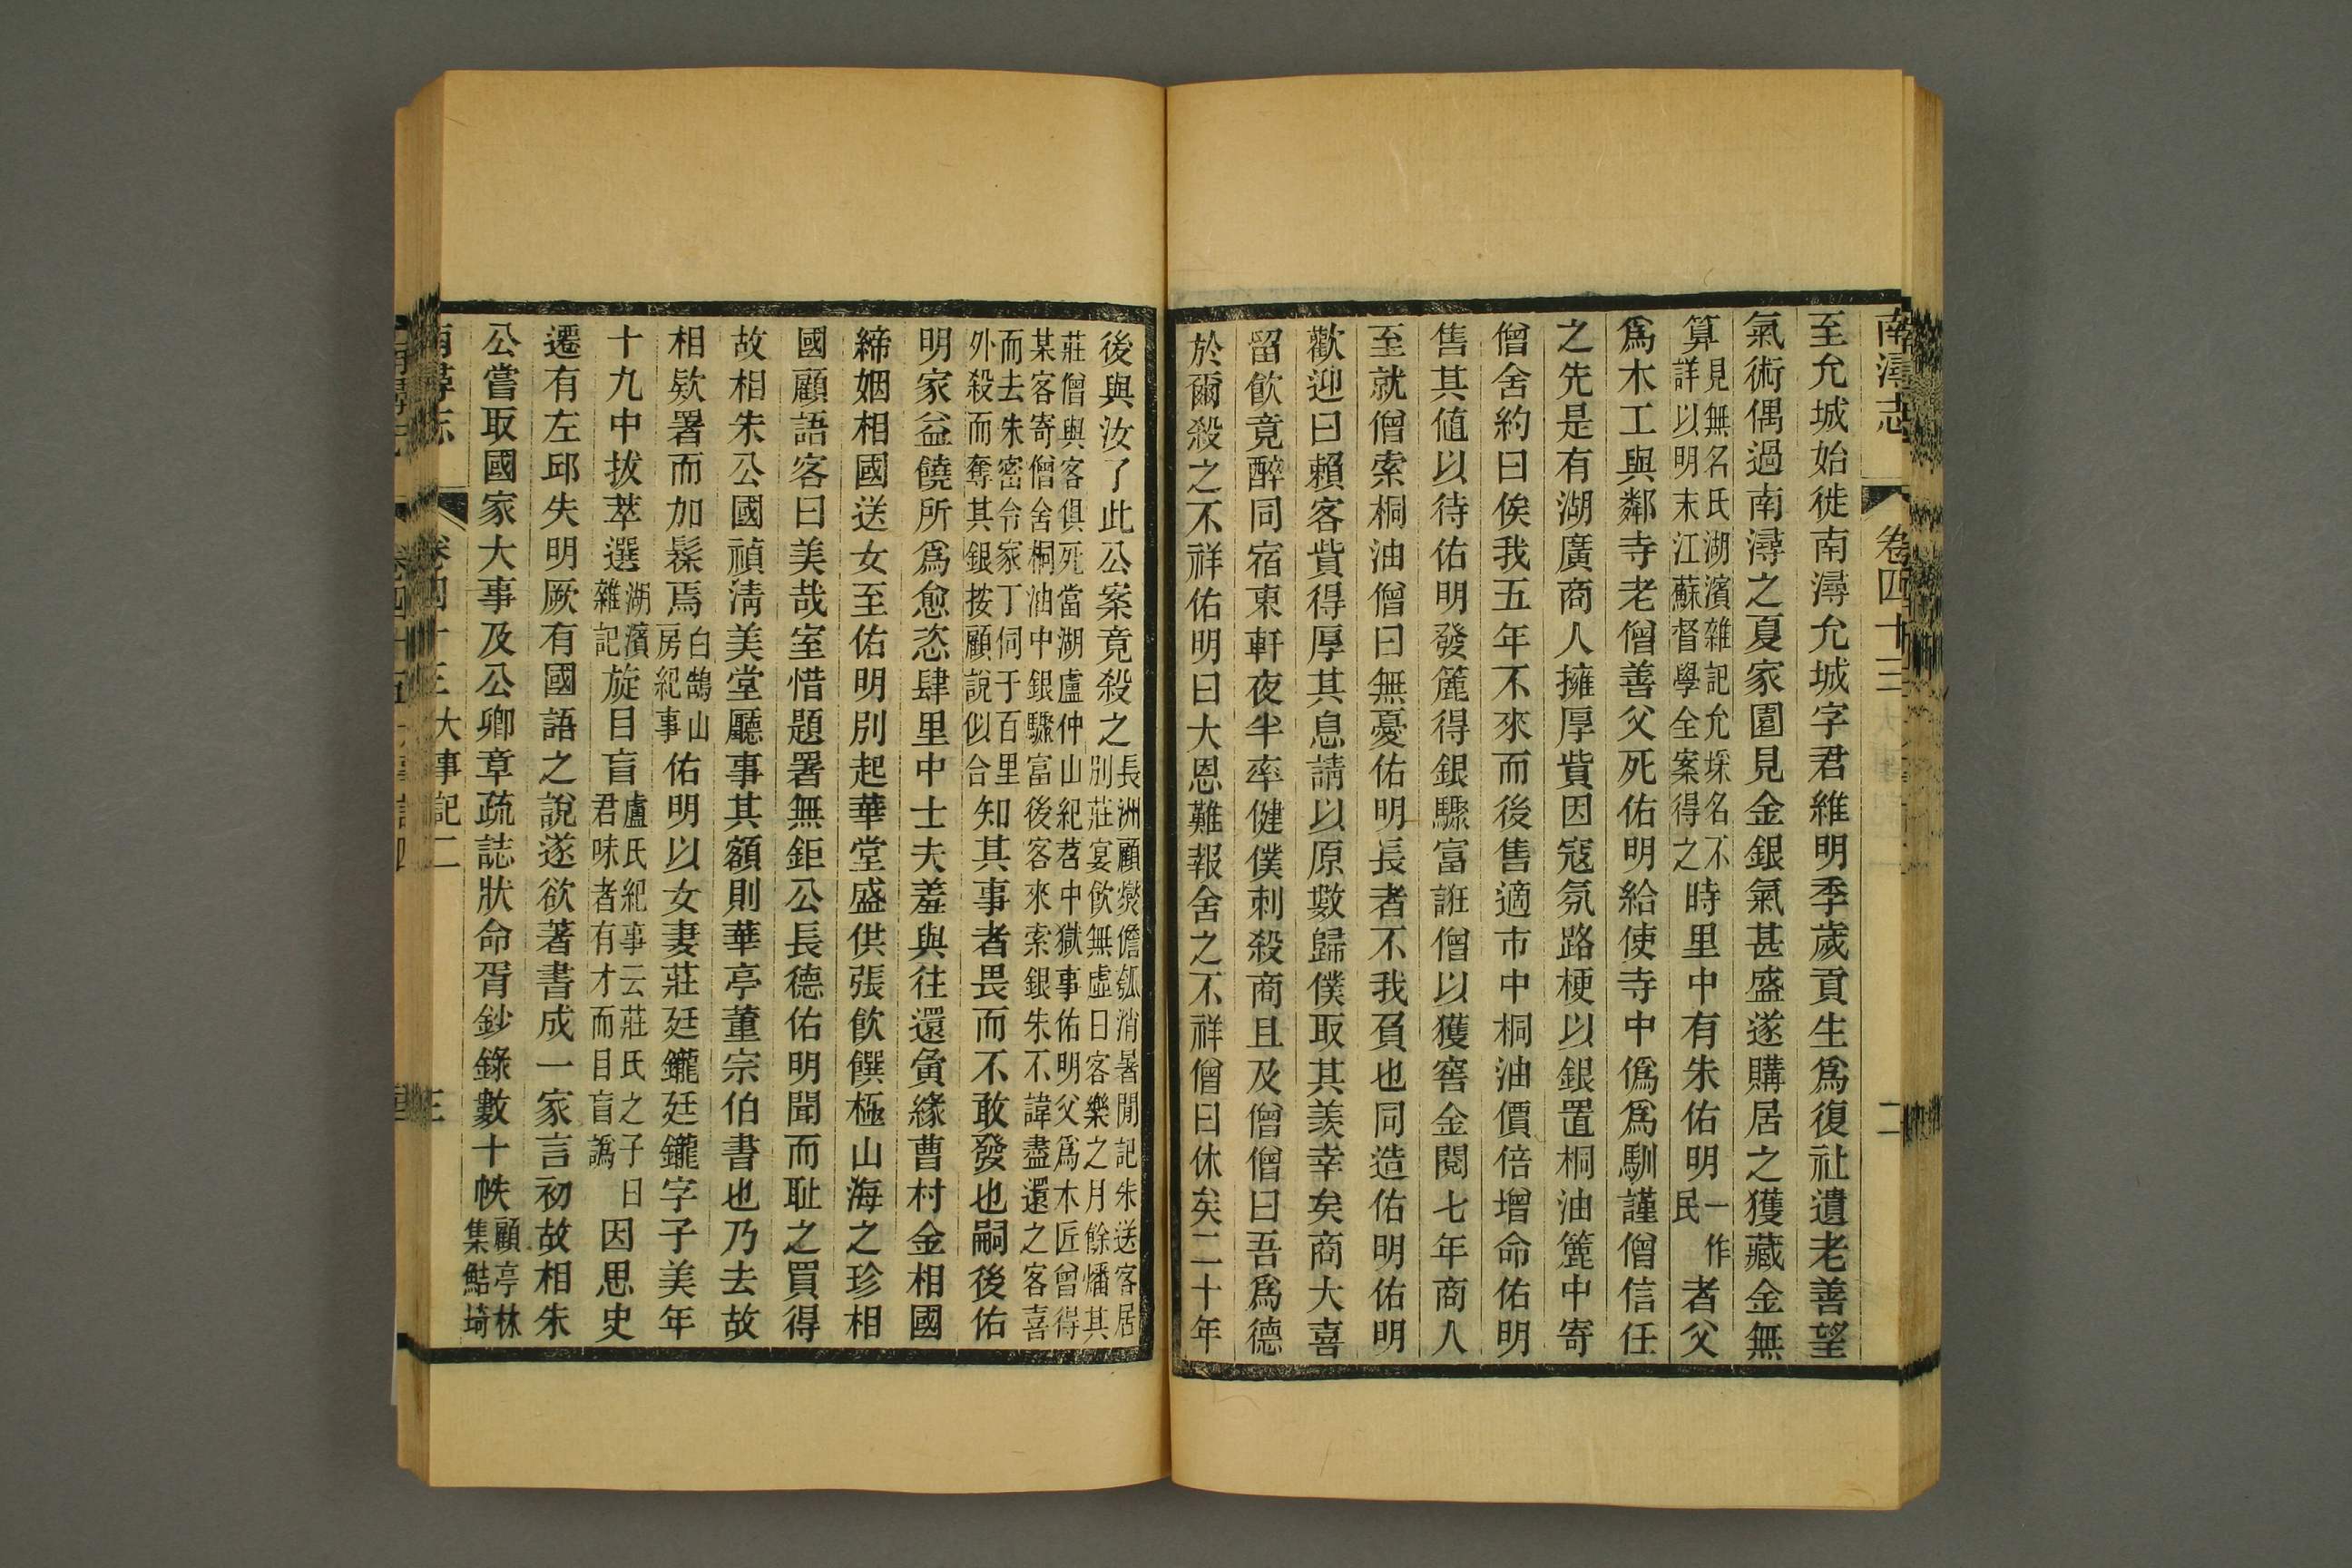 南潯志
卷四十三
二
至允城始徙南潯允城字君維明季歲貢生爲復社遺老善望
氣術偶過南潯之夏家園見金銀氣甚盛遂購居之獲藏金無
算
見無名氏湖濱雜記允埰名不
詳以明末江蘇督學全案得之
時里中有朱佑明
一作
民
者父
爲木工與鄰寺老僧善父死佑明給使寺中僞爲馴謹僧信任
之先是有湖廣商人擁厚貲因寇氛路梗以銀置桐油簏中寄
僧舍約曰俟我五年不來而後售適市中桐油價倍增命佑明
售其值以待佑明發簏得銀驟富誑僧以獲窖金閱七年商人
至就僧索桐油僧曰無憂佑明長者不我負也同造佑明佑明
歡迎曰賴客貲得厚其息請以原數歸僕取其羨幸矣商大喜
留飮竟醉同宿東軒夜半率健僕刺殺商且及僧僧曰吾爲德
於爾殺之不祥佑明曰大恩難報舍之不祥僧曰休矣二十年
後與汝了此公案竟殺之
長洲顧爕儋瓠消暑閒記朱送客居
別莊宴飮無虛日客樂之月餘燔其
莊僧與客俱死當湖盧仲山紀苕中獄事佑明父爲木匠曾得
某客寄僧舍桐油中銀驟富後客來索銀朱不諱盡還之客喜
而去朱密令家丁伺于百里
外殺而奪其銀按顧說似合
知其事者畏而不敢發也嗣後佑
明家益饒所爲愈恣肆里中士夫羞與往還夤緣曹村金相國
締姻相國送女至佑明別起華堂盛供張飮饌極山海之珍相
國顧語客曰美哉室惜題署無鉅公長德佑明聞而耻之買得
故相朱公國禎淸美堂廳事其額則華亭董宗伯書也乃去故
相欵署而加髹焉
白鵠山
房紀事
佑明以女妻莊廷鑨廷鑨字子美年
十九中拔萃選
湖濱
雜記
旋目盲
盧氏紀事云莊氏之子日
君味者有才而目盲譌
因思史
遷有左邱失明厥有國語之說遂欲著書成一家言初故相朱
公嘗取國家大事及公卿章疏誌狀命胥鈔錄數十帙
顧亭林
集鮚埼
南潯志
卷四十三
大事記二
三